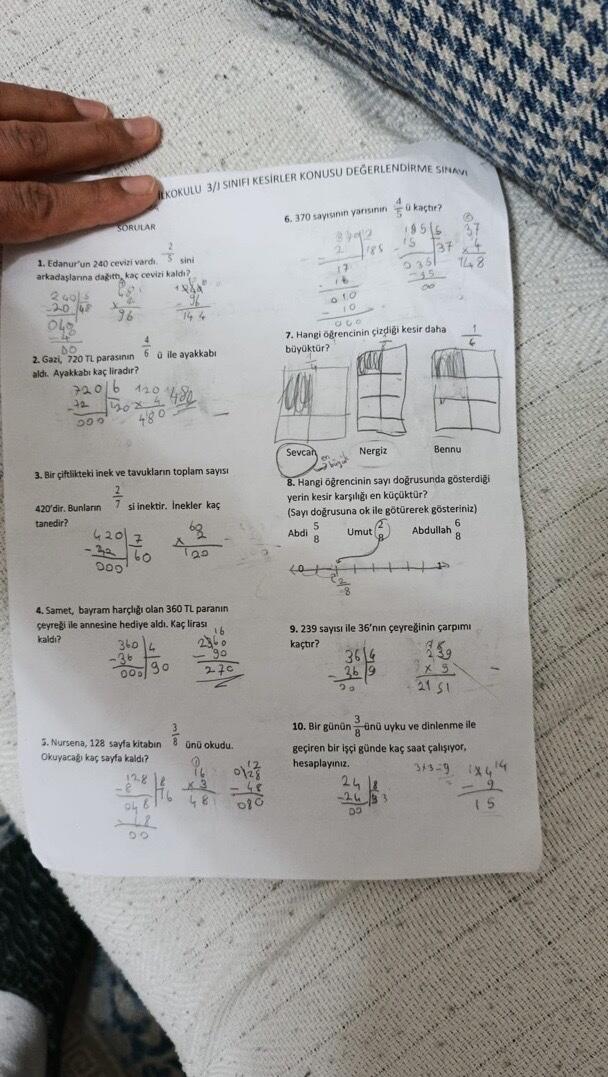 İLKOKULU 3/J SINIFI KESİRLER KONUSU DEĞERLENDİRME SINAVI
SORULAR
1. Edanur'un 240 cevizi vardı. 2/5 sini
arkadaşlarına dağıttı, kaç cevizi kaldı?
240 5
-20 48
048
00
48
x 2
96
96
144
2. Gazi, 720 TL parasının 4/6 ü ile ayakkabı
aldı. Ayakkabı kaç liradır?
720 6
-72 120
000
120
x 4
480
480
3. Bir çiftlikteki inek ve tavukların toplam sayısı
420'dir. Bunların 2/7 si inektir. İnekler kaç
tanedir?
420 7
60
000
60
x 2
120
4. Samet, bayram harçlığı olan 360 TL paranın
çeyreği ile annesine hediye aldı. Kaç lirası
kaldı?
360 4
-36 90
000
- 90
270
5. Nursena, 128 sayfa kitabın 3/8 ünü okudu.
Okuyacağı kaç sayfa kaldı?
128 8
-8 16
048
48
00
16
x 3
48
- 48
080
6. 370 sayısının yarısının 4/5 ü kaçtır?
370 2
2 185
17
- 16
010
- 10
000
185 5
15 37
035
- 35
00
37
x 4
148
7. Hangi öğrencinin çizdiği kesir daha
büyüktür?
Sevcan
en büyük
Nergiz
Bennu
8. Hangi öğrencinin sayı doğrusunda gösterdiği
yerin kesir karşılığı en küçüktür?
(Sayı doğrusuna ok ile götürerek gösteriniz)
Abdi 5/8 Umut 2/8 Abdullah 6/8
0
2/8
9. 239 sayısı ile 36'nın çeyreğinin çarpımı
kaçtır?
36 4
- 36 9
239
x 9
2151
10. Bir günün 3/8 ünü uyku ve dinlenme ile
geçiren bir işçi günde kaç saat çalışıyor,
hesaplayınız.
24 8
-24 3
00
3x3=9
- 9
15